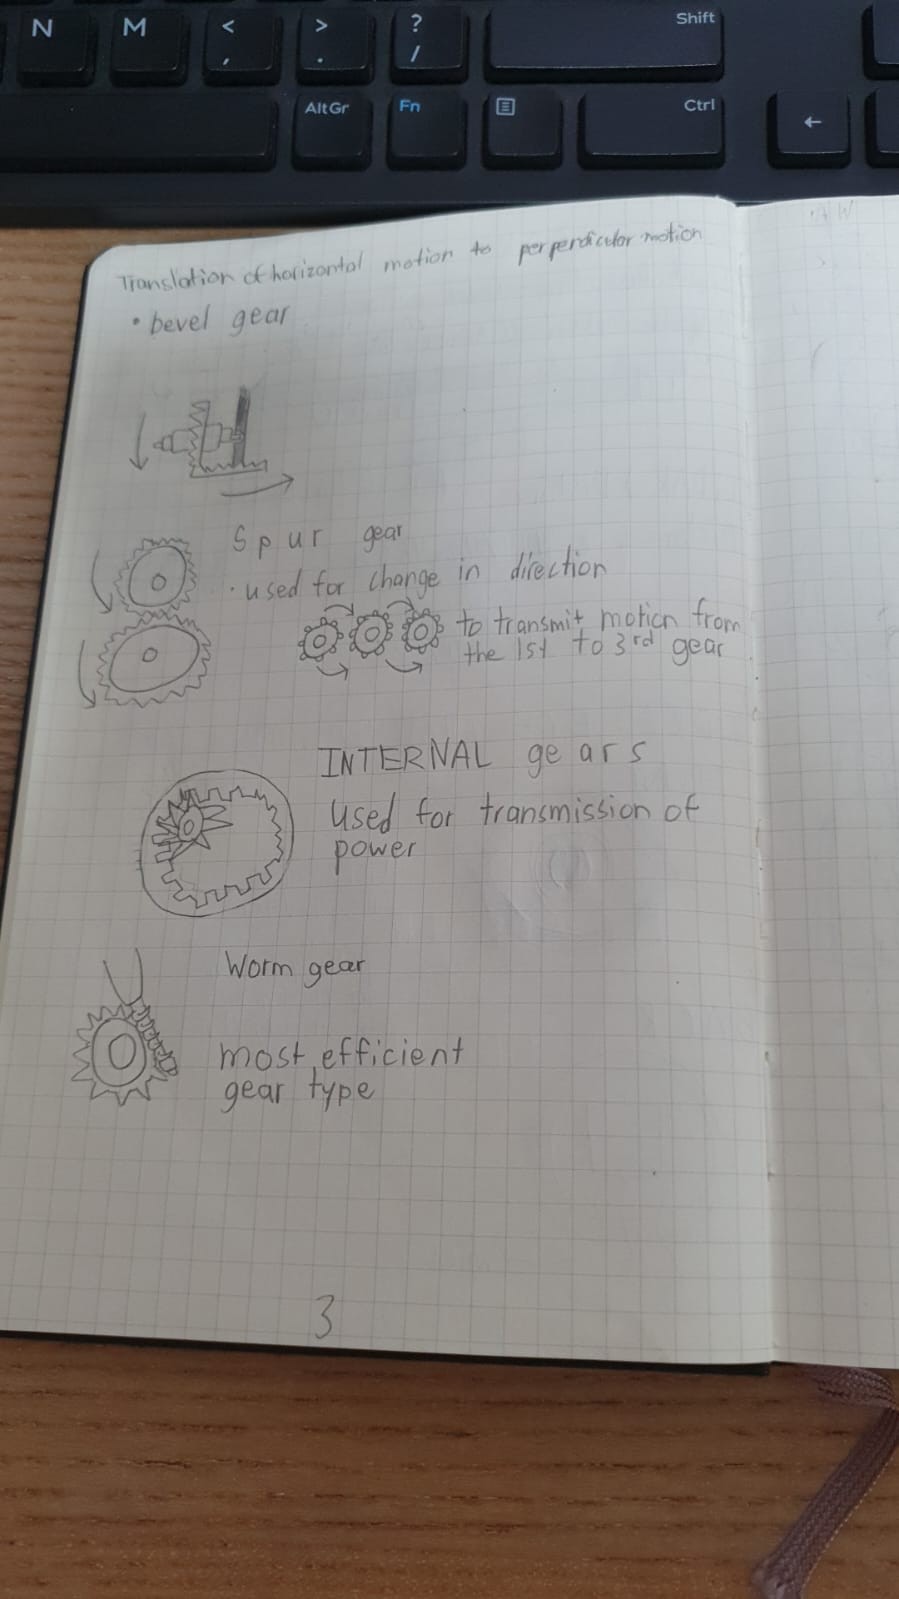 N M < , > . ? / Shift
AltGr Fn Ctrl ←
Translation of horizontal motion to perperdicular motion
• bevel gear
Spur gear
· used for change in direction
to transmit motion from
the 1st to 3rd gear
INTERNAL gears
used for transmission of
power
Worm gear
most efficient
gear type
3